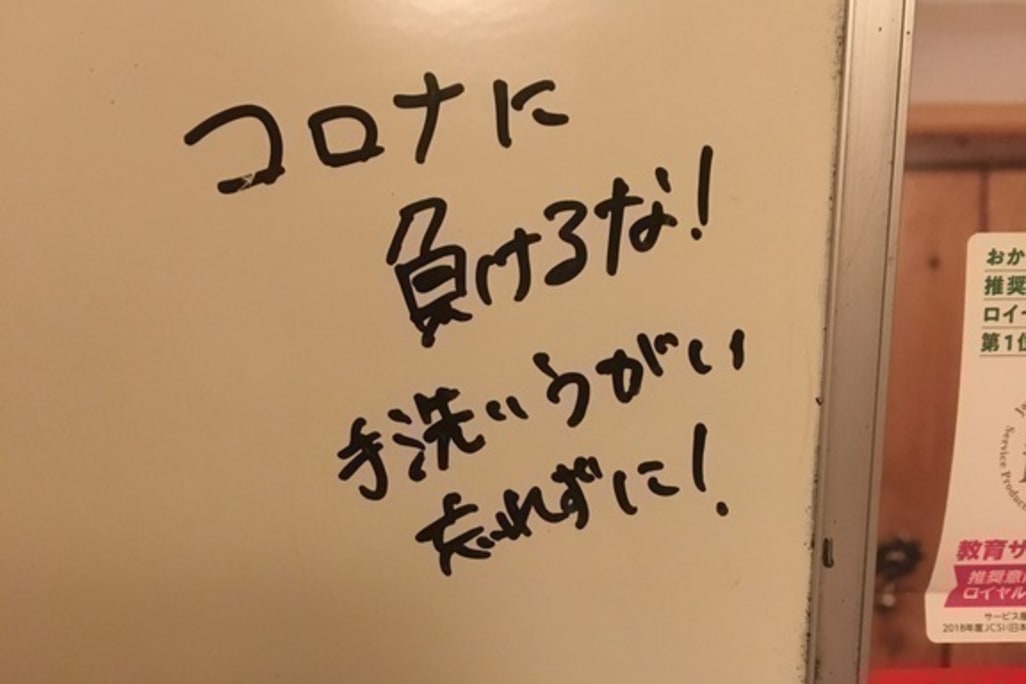 コロナに
負けるな!
手洗いうがい
忘れずに!
おか
推奨
ロイ
第1位
Service Produc
教育サ
推奨意
ロイヤル
サービス
2018年度JCSI(日本